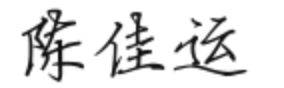 陈佳运